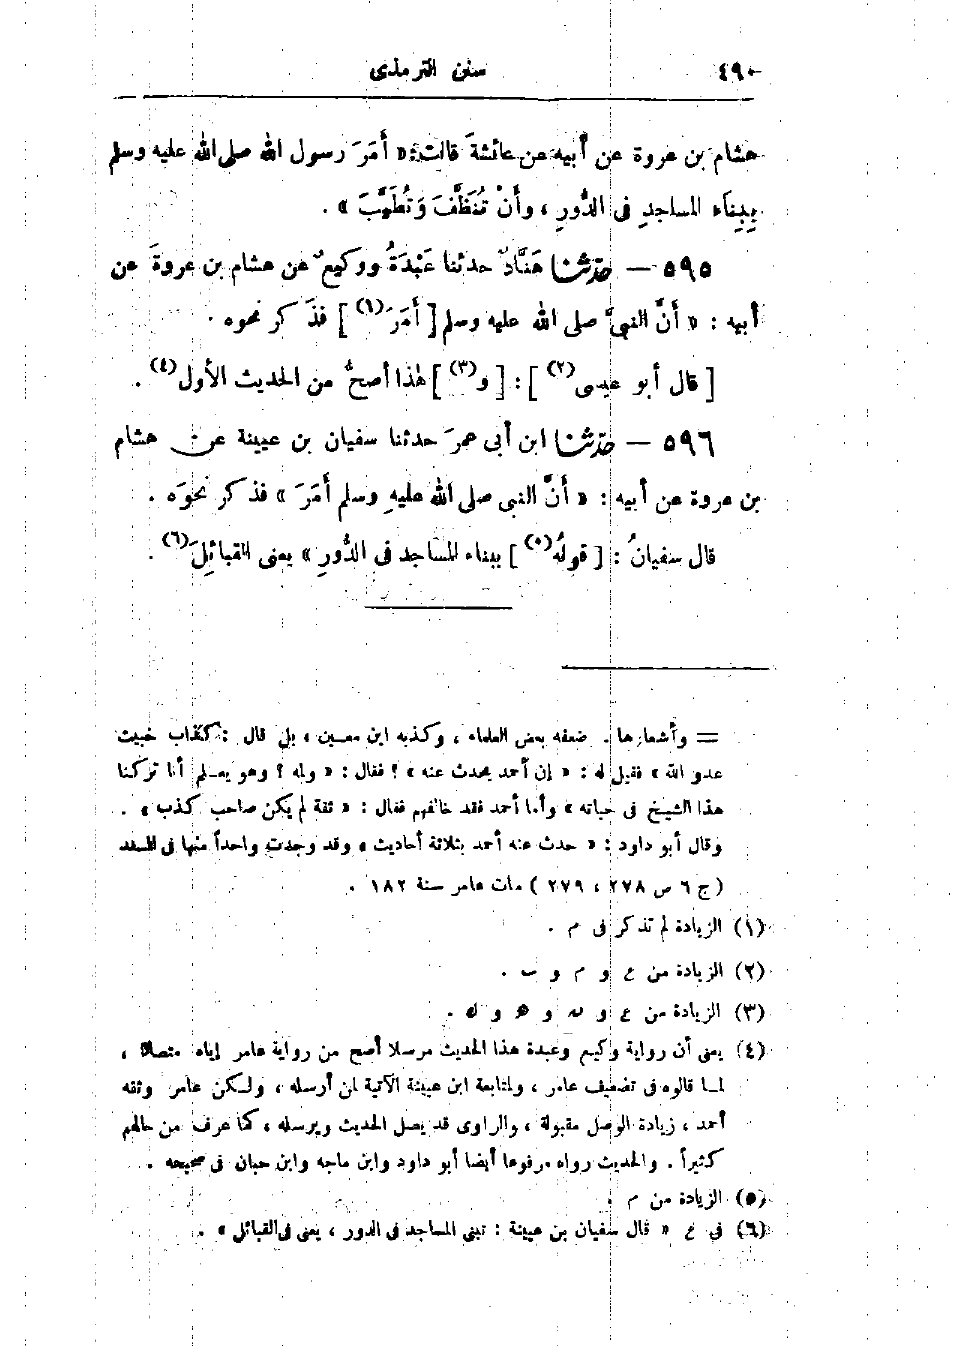 ٤٩٠
سنن الترمذى
هشام بن عروة عن أبيه عن عائشةَ قالت: « أَمَرَ رسول الله صلى الله عليه وسلم
بِبِنَاءِ المساجدِ فى الدُّورِ ، وأَنْ تُنَظَّفَ وَتُطَيَّبَ » .
٥٩٥ — حدّثنا هَنَّادٌ حدثنا عَبْدَةُ ووكيعٌ عن هشام بن عروةَ عن
أبيه : « أَنَّ النبىَّ صلى الله عليه وسلم [ أَمَرَ (١) ] فذَكر نحوه .
[ قال أبو عيسى (٢) ] : [ و (٣) ] هٰذا أصحُّ من الحديث الأول (٤) .
٥٩٦ — حدّثنا ابن أبى عمرَ حدثنا سفيان بن عيينة عن هشام
بن عروة عن أبيه : « أَنَّ النبى صلى الله عليهِ وسلم أَمَرَ » فذكر نحوَه .
قال سفيانُ : [ قولُه (٥) ] ببناء المساجد فى الدُّورِ » يعنى القبائِلَ (٦) .
= وأشعارها . ضعفه بعض العلماء ، وكذبه ابن معين ، بل قال : كذاب خبيث
عدو الله » فقيل له : « إن أحمد يحدث عنه » ؟ فقال : « ولمه ؟ وهو يعلم أنا تركنا
هذا الشيخ فى حياته » وأما أحمد فقد خالفهم فقال : « ثقة لم يكن صاحب كذب » .
وقال أبو داود : « حدث عنه أحمد بثلاثة أحاديث » وقد وجدت واحداً منها فى المسند
( ج ٦ ص ٢٧٨ ، ٢٧٩ ) مات عامر سنة ١٨٢ .
(١) الزيادة لم تذكر فى م .
(٢) الزيادة من ع و م و ب .
(٣) الزيادة من ع و ن و ه و ك .
(٤) يعنى أن رواية وكيع وعبدة هذا الحديث مرسلا أصح من رواية عامر إياه متصلا ،
لما قالوه فى تضعيف عامر ، ولمتابعة ابن عيينة الآتية لمن أرسله ، ولكن عامر وثقه
أحمد ، زيادة الوصل مقبولة ، والراوى قد يصل الحديث ويرسله ، كما عرف من حالهم
كثيراً . والحديث رواه مرفوعا أيضا أبو داود وابن ماجه وابن حبان فى صحيحه .
(٥) الزيادة من م .
(٦) فى ع « قال سفيان بن عيينة : تبنى المساجد فى الدور ، يعنى فى القبائل » .